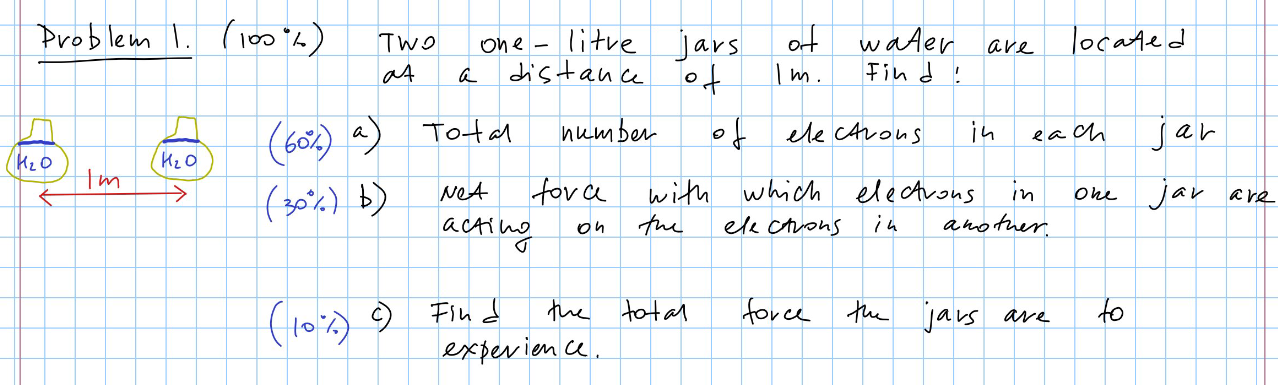 Problem 1. (100%) Two one-litre jars of water are located
at a distance of 1m. Find:
H₂O H₂O (60%) a) Total number of electrons in each jar
1m (30%) b) Net force with which electrons in one jar are
acting on the electrons in another.
(10%) c) Find the total force the jars are to
experience.